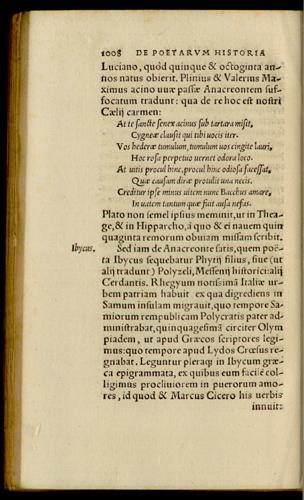 1008 DE POETARVM HISTORIA
Luciano, quód quinque & octoginta an-
nos natus obierit. Plinius & Valerius Ma-
ximus acino uuæ passæ Anacreontem suf-
focatum tradunt: qua de re hoc est nostri
Cælij carmen:
At te sancte senex acinus sub tartara misit,
Cygneæ clausit qui tibi uocis iter.
Vos hederæ tumulum, tumulum uos cingite lauri,
Hoc rosa perpetuo uernet odora loco.
At uitis procul hinc, procul hinc odiosa facessat,
Quæ causam diræ protulit uua necis.
Creditur ipse minus uitem nunc Bacchus amare,
In uatem tantum quæ fuit ausa nefas.
Plato non semel ipsius meminit, ut in Thea-
ge, & in Hipparcho, à quo & ei nauem quin
quaginta remorum obuiam missam scribit.
Ibycus. Sed iam de Anacreonte satis, quem poë-
ta Ibycus sequebatur Phytij filius, siue (ut
alij tradunt) Polyzeli, Messenij historici: alij
Cerdantis. Rhegium nonissimā Italiæ ur-
bem patriam habuit ex qua digrediens in
Samum insulam migrauit, quo tempore Sa-
miorum rempublicam Polycratis pater ad-
ministrabat, quinquagesimā circiter Olym
piadem, ut apud Græcos scriptores legi-
mus: quo tempore apud Lydos Crœsus re-
gnabat. Leguntur pleraq; in Ibycum græ-
ca epigrammata, ex quibus eum facilè col-
ligimus procliuiorem in puerorum amo-
res, id quod & Marcus Cicero his uerbis
innuit: